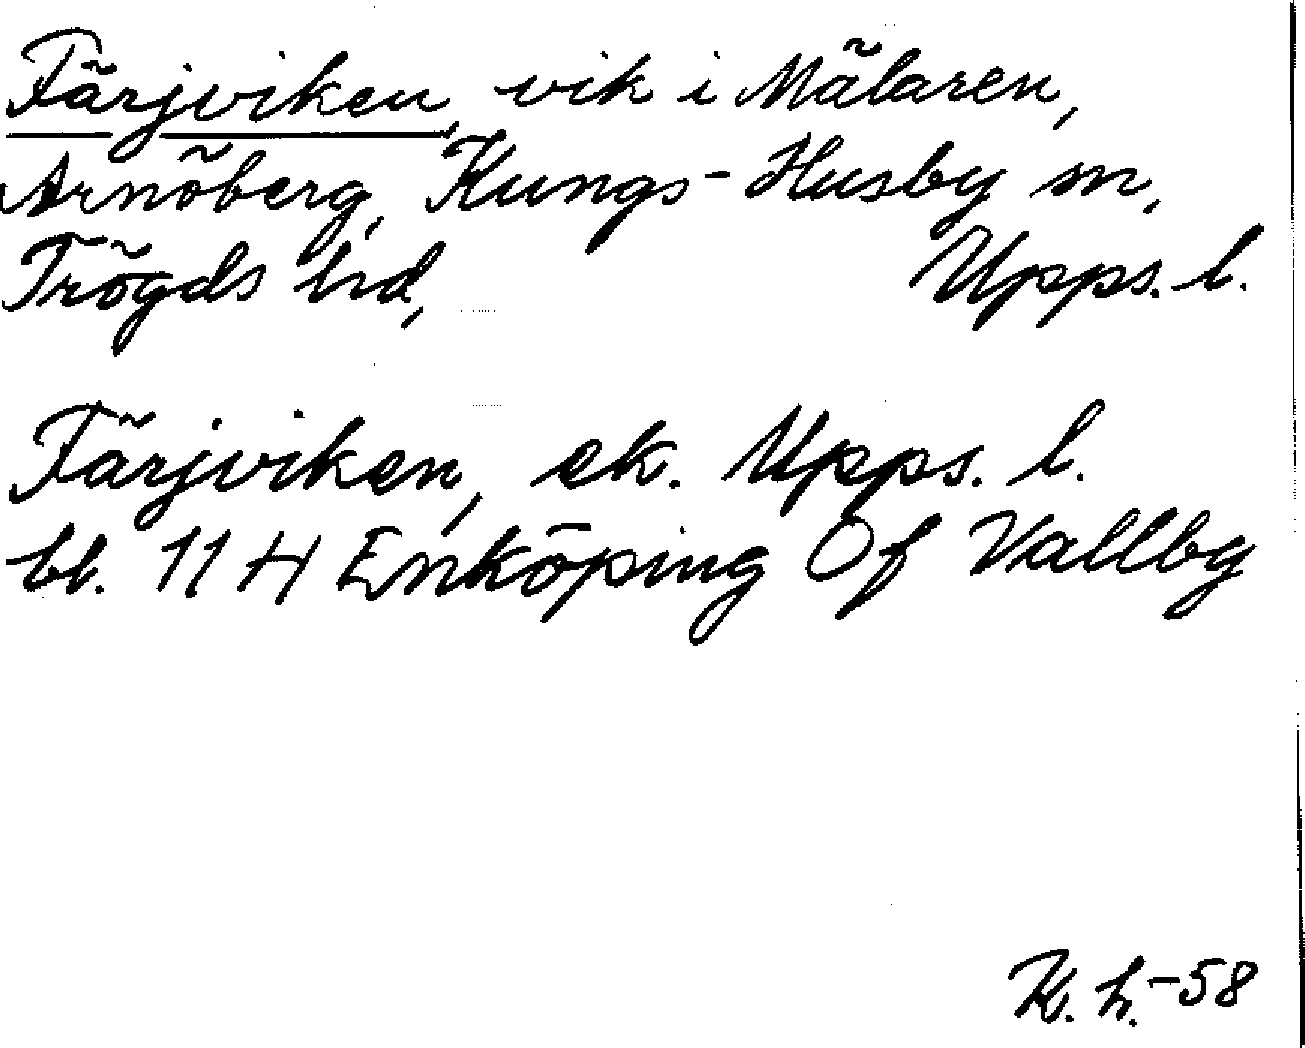 Färjviken, vik i Mälaren,
Arnöberg, Kungs-Husby sn,
Trögds hd, Upps. l.
Färjviken, ek. Upps. l.
bl. 11 H Enköping Öf Vallby
K. h. -58